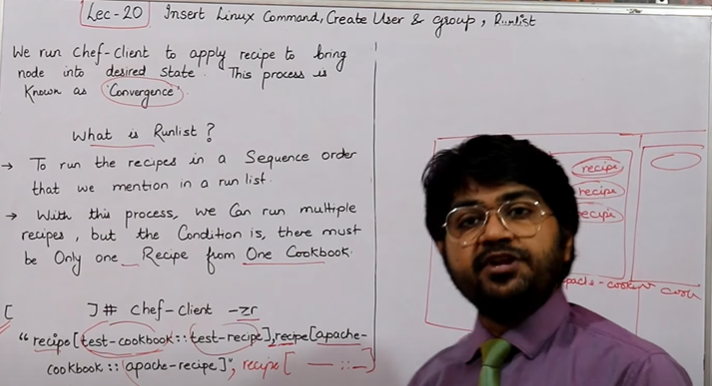 Lec-20 Insert Linux Command, Create User & group, Runlist
We run Chef-Client to apply recipe to bring
node into desired state. This process is
Known as "Convergence"
What is Runlist?
→ To run the recipes in a Sequence order
that we mention in a run list.
→ With this process, we Can run multiple
recipes, but the Condition is, there must
be Only one _ Recipe from One Cookbook.
[ ]# chef-client -zr
"recipe[test-cookbook::test-recipe],recipe[apache-
cookbook::apache-recipe]", recipe[ — ::_]
recipe
recipe
recipe